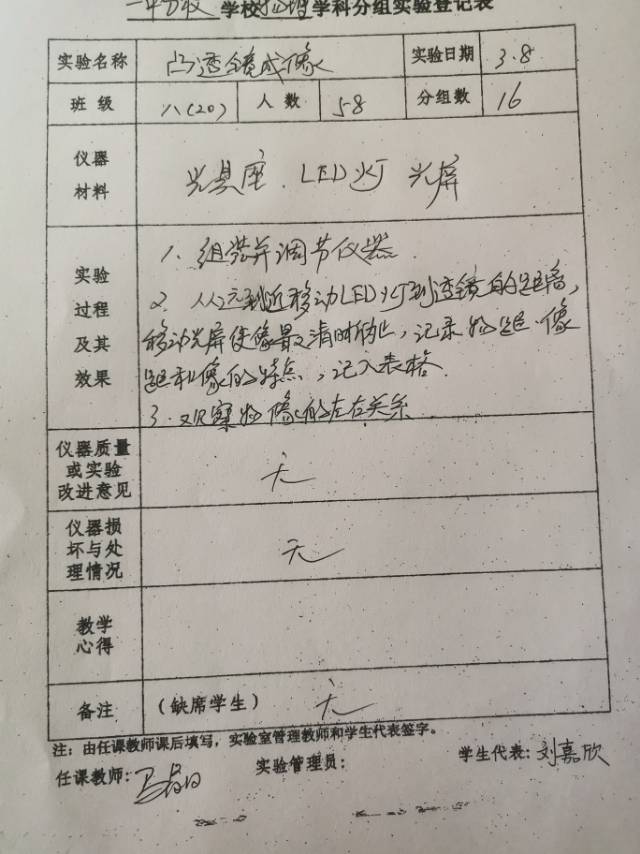 一中分校学校物理学科分组实验登记表
实验名称 凸透镜成像 实验日期 3.8
班级 八(20) 人数 58 分组数 16
仪器
材料
光具座、LED灯 光屏
实验
过程
及其
效果
1. 组装并调节仪器.
2. 从远到近移动LED灯到透镜的距离,
移动光屏使像最清时的止,记录物距、像
距和像的特点,记入表格.
3. 观察物像的左右关系
仪器质量
或实验
改进意见
无
仪器损
坏与处
理情况
无
教学
心得
备注 (缺席学生) 无
注:由任课教师课后填写,实验室管理教师和学生代表签字。
任课教师: 实验管理员: 学生代表:刘嘉欣